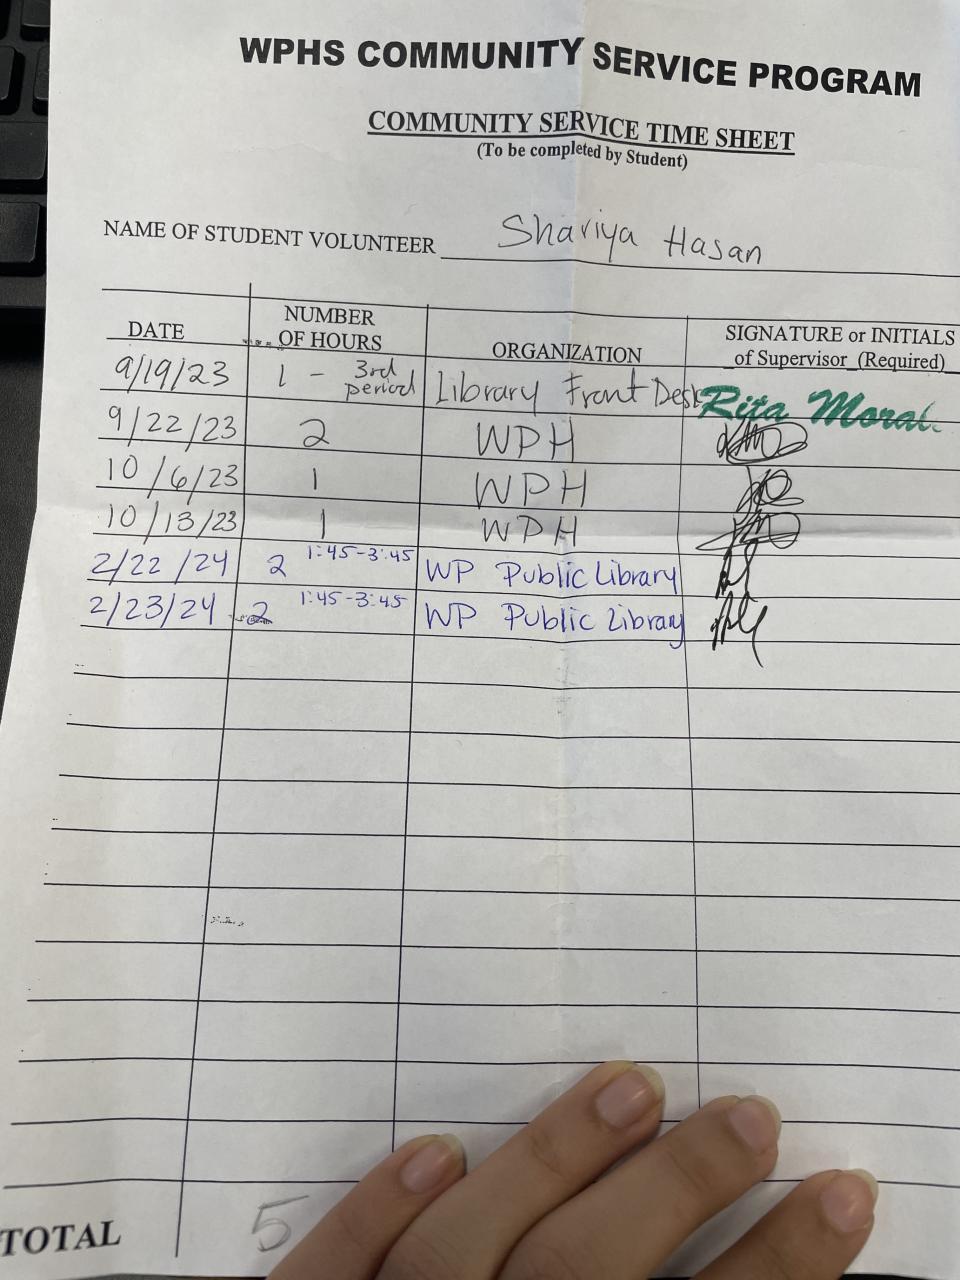 WPHS COMMUNITY SERVICE PROGRAM
COMMUNITY SERVICE TIME SHEET
(To be completed by Student)
NAME OF STUDENT VOLUNTEER Shariya Hasan
DATE NUMBER OF HOURS ORGANIZATION SIGNATURE or INITIALS of Supervisor (Required)
9/19/23 1 - 3rd period Library Front Desk Rita Moral
9/22/23 2 WPH
10/6/23 1 WPH
10/13/23 1 WPH
2/22/24 2 1:45-3:45 WP Public Library
2/23/24 2 1:45-3:45 WP Public Library
TOTAL 5